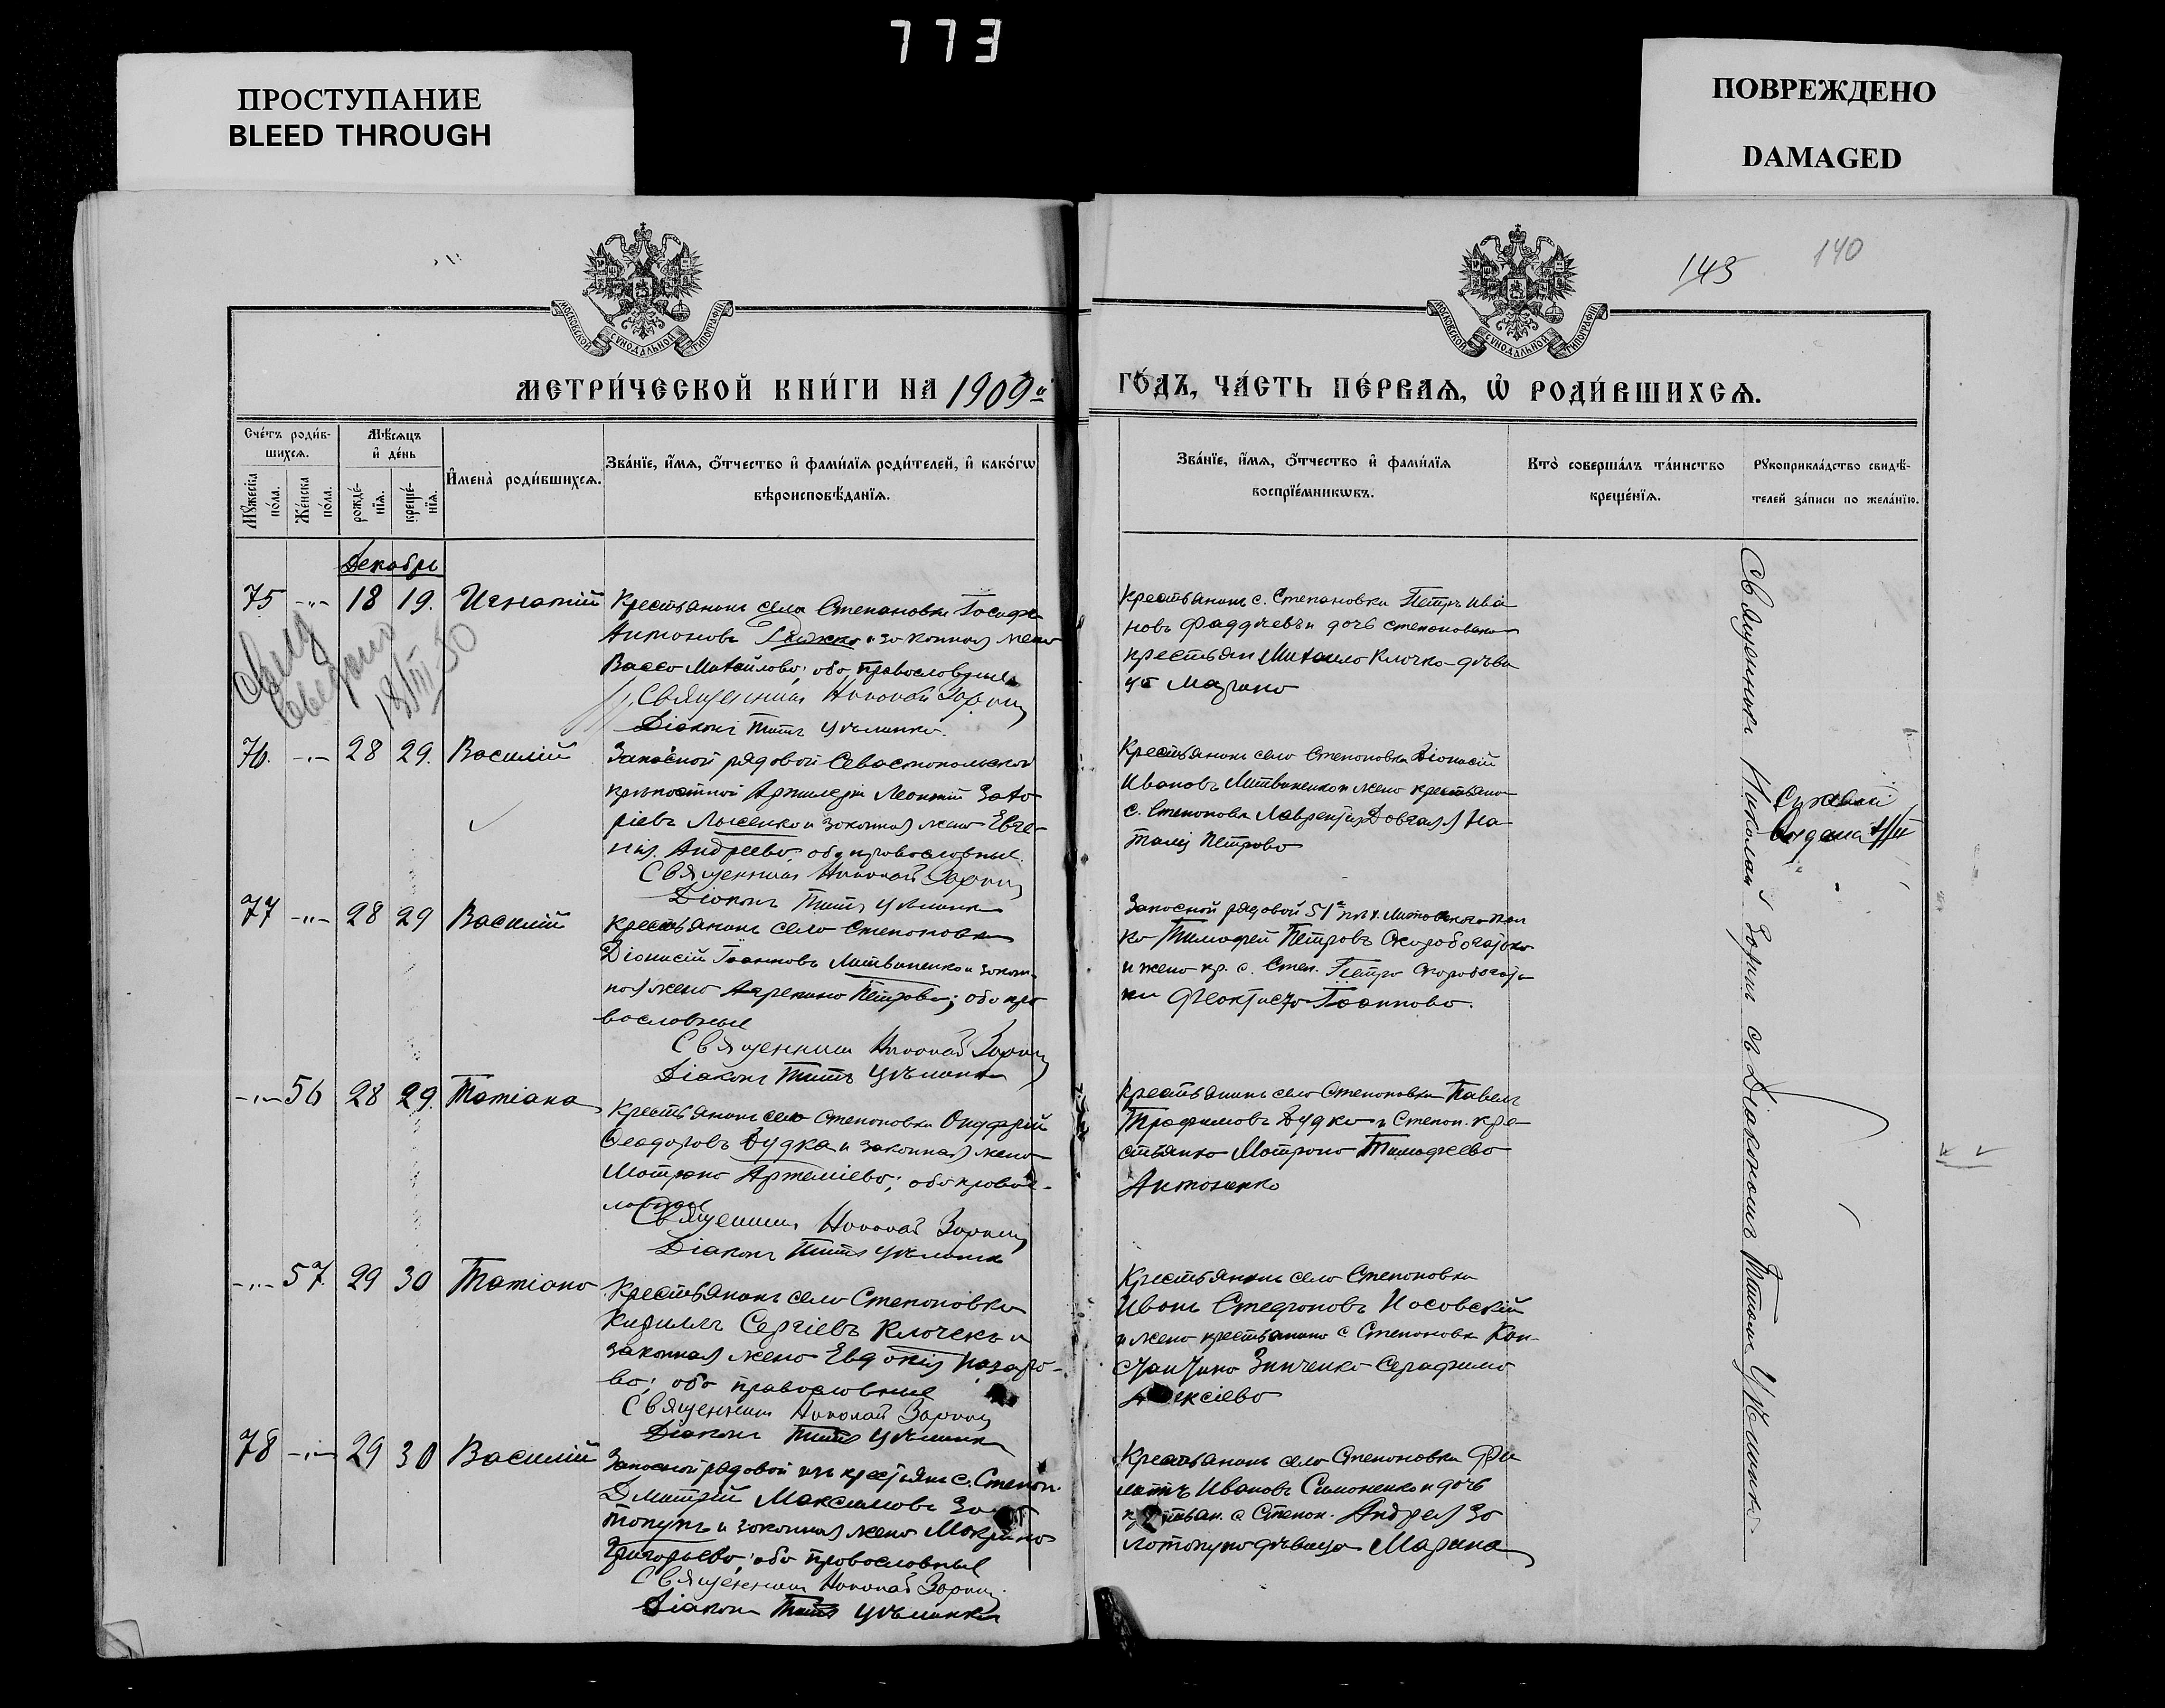 773
ПРОСТУПАНИЕ
BLEED THROUGH
ПОВРЕЖДЕНО
DAMAGED
145
140
МОСКОВСКОЙ СѴНОДАЛЬНОЙ ТИПОГРАФІИ
МОСКОВСКОЙ СѴНОДАЛЬНОЙ ТИПОГРАФІИ
МЕТРИ́ЧЕСКОЙ КНИ́ГИ НА 1909й
ГО́ДЪ, ЧА́СТЬ ПЕ́РВАѦ, Ѡ҆ РОДИ́ВШИХСѦ.
Сче́тъ роди́в-
шихсѧ.
Мꙋ́жеска по́ла.
Же́нска по́ла.
Мѣ́сѧцъ
и҆ де́нь
рожде́-нїѧ.
креще́-нїѧ.
И҆мена̀ роди́вшихсѧ.
Зва́нїе, и҆́мѧ, ѻ҆́тчество и҆ фами́лїѧ роди́телей, и҆ како́гѡ
вѣроисповѣ́данїѧ.
Зва́нїе, и҆́мѧ, ѻ҆́тчество и҆ фами́лїѧ
воспрїе́мникѡвъ.
Кто̀ соверша́лъ та́инство
креще́нїѧ.
Рꙋкоприкла́дство свидѣ́-
телей за́писи по жела́нїю.
Декабрь
75 -"- 18 19. Игнатій
Крестьянинъ села Степановки Іосифъ
Антоновъ и законная жена
Васса Михайлова; оба православные
Священникъ Николай Зоринъ
Діаконъ Титъ Цѣлинко
Крестьянинъ с. Степановки Петръ Ива
новъ Фаддѣевъ и дочь степановскаго
крестьян Михаила Клочко-дѣви
ца
18/III 30
76. -"- 28 29. Василій
Запасной рядовой Севастопольской
крѣпостной Артилеріи Леонтій Заха
ріевъ Лысенко и законная жена Евге-
нія Андреева, оба православные.
Священникъ Николай Зоринъ
Діаконъ Титъ Цѣлинко
Крестьянинъ села Степановки Діонисій
Ивановъ Литвиненко и жена крестьяни
с. Степановки Лаврентія Довгаля На
талія Петрова
выдана
77 -"- 28 29 Василій
Крестьянинъ села Степановки
Діонисій Іоанновъ Литвиненко и закон-
ная жена Петрова; оба пра
вославные
Священникъ Николай Зоринъ
Діаконъ Титъ Цѣлинко
Запасной рядовой 51го пѣх. Литовскаго пол
ка Тимофей Петровъ Скоробогатько
и жена кр. с. Степ. Петра Скоробогать
ки Феоктиста Іоаннова.
-"- 56 28 29. Татіана
Крестьянинъ села Степановки Онуфрій
Феодоровъ Дудка и законная жена
Матрона Артеміева; оба правос-
лавные
Священникъ Николай Зоринъ
Діаконъ Титъ Цѣлинко
Крестьянинъ села Степановки Павелъ
Трофимовъ Дудка и Степан. кре
стьянка Матрона Тимофеева
Антоненко
-"- 57. 29 30 Татіана
Крестьянинъ села Степановки
Кириллъ Сергіевъ Клочекъ и
законная жена Евдокія Назаро-
ва; оба православные
Священникъ Николай Зоринъ
Діаконъ Титъ Цѣлинко
Крестьянинъ села Степановки
Иванъ Стефановъ Носовскій
и жена крестьянина с Степановки Кон-
стантина Зинченко Серафима
Алексіева
78 -"- 29 30 Василій
Запасной рядовой изъ крестьянъ с. Степан.
Дмитрій Максимовъ Зо
топупъ и законная жена Макрина
Григорьева; оба православные
Священникъ Николай Зоринъ
Діаконъ Титъ Цѣлинко
Крестьянинъ села Степановки Фи
липпъ Ивановъ Симоненко и дочь
крестьян. с Степан. Андрея Зо
лотопупа дѣвица Марина
Священникъ Николай Зоринъ съ Діакономъ Титомъ Цѣлинко